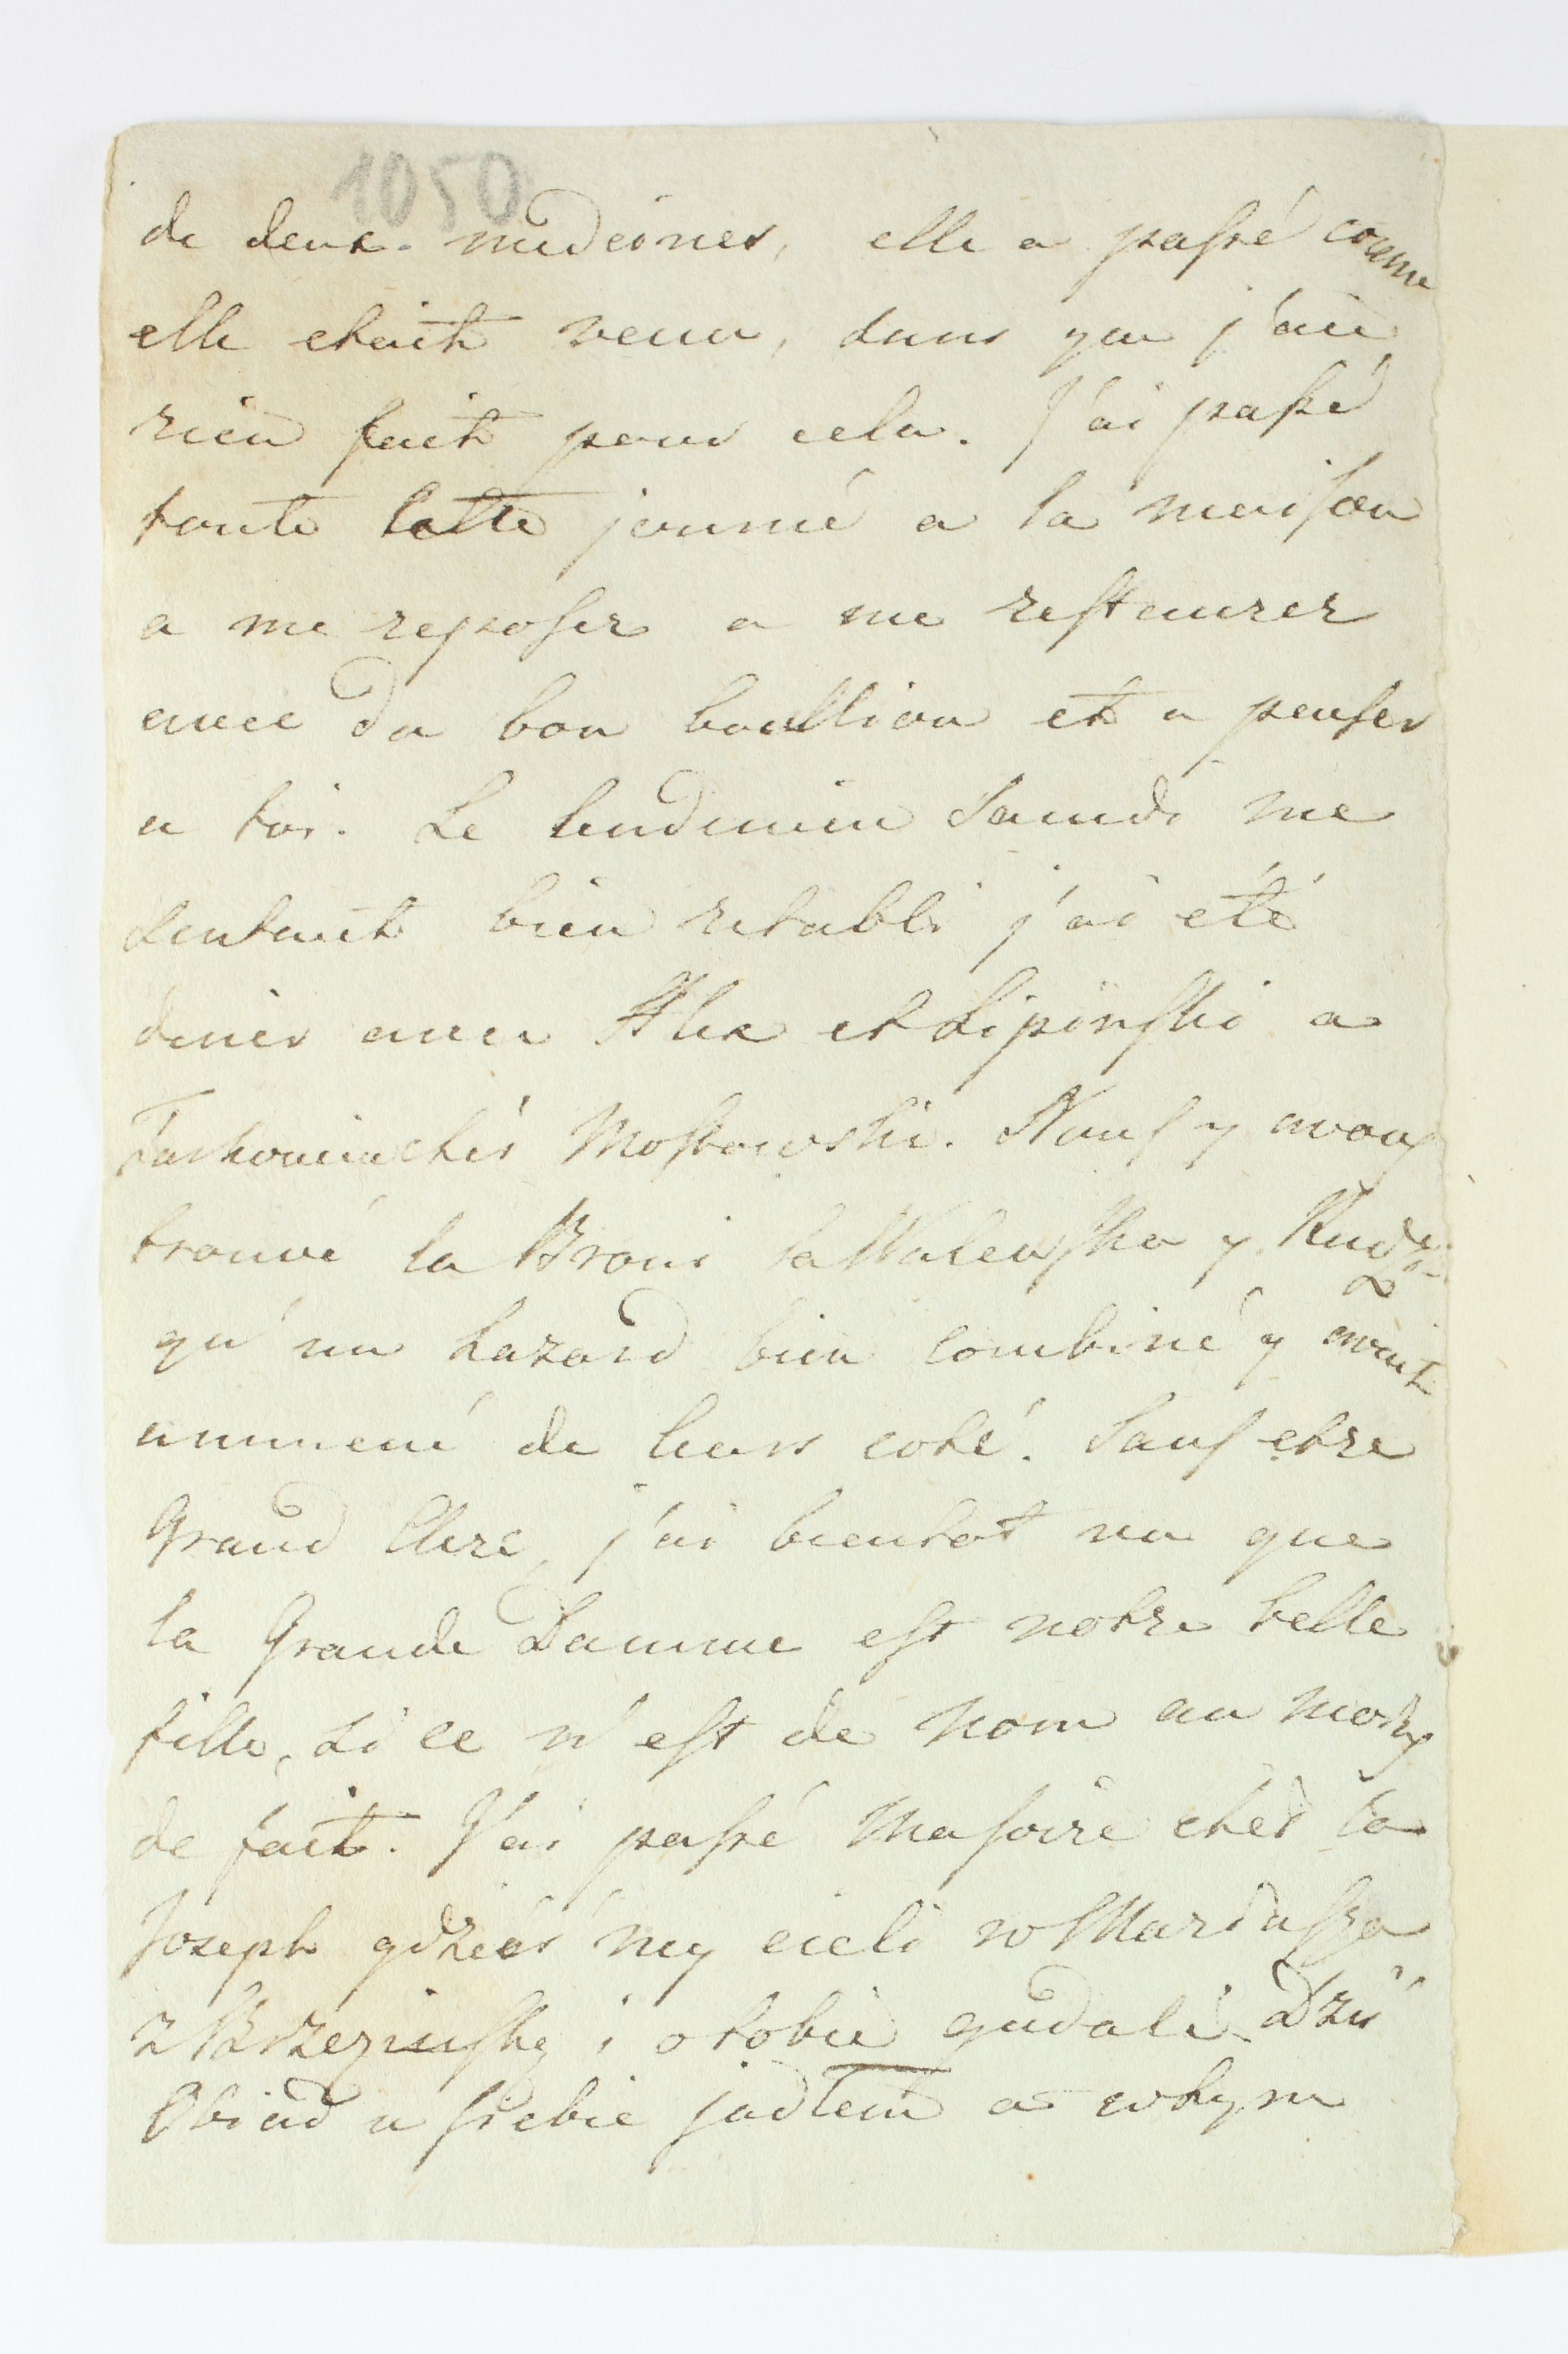 1050
de deux medeines, elle a passé comme
elle etait venu, sans que j'aie
rien fait pour cela. J'ai passé
toute cette journé a la maison
a me reposer a me restaurer
avec du bon boullion et a penser
a toi. Le lendemain Samdi me
sentant bien retabli j'ai été
diner avec Alex et Lipinski a
chés Mostowski. Nous y avons
trouvé la Broni la Walewska y
qu'un hazard bien combiné y avait
ammené de leurs coté. Sans etre
Grand Clerc, j'ai bientot vu que
la Grande Damme est notre belle
fille, si ce n'est de nom au moins
de fait. J'ai passé ma soiré chés la
Joseph gdzieś my cieli w Mariasza
z Brzezinską i o tobie gadali. Dziś
Obiad u siebie jadłem a wtym